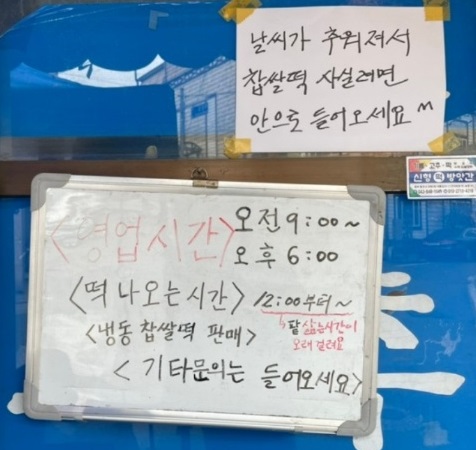 날씨가 추워져서
찹쌀떡 사실려면
안으로 들어오세요^^
고추·떡
신형 떡 방앗간
<영업시간> 오전 9:00~
오후 6:00
<떡 나오는 시간> 12:00부터~
<냉동 찹쌀떡 판매> ↳팥 삶는시간이
오래 걸려요
<기타문의는 들어오세요>